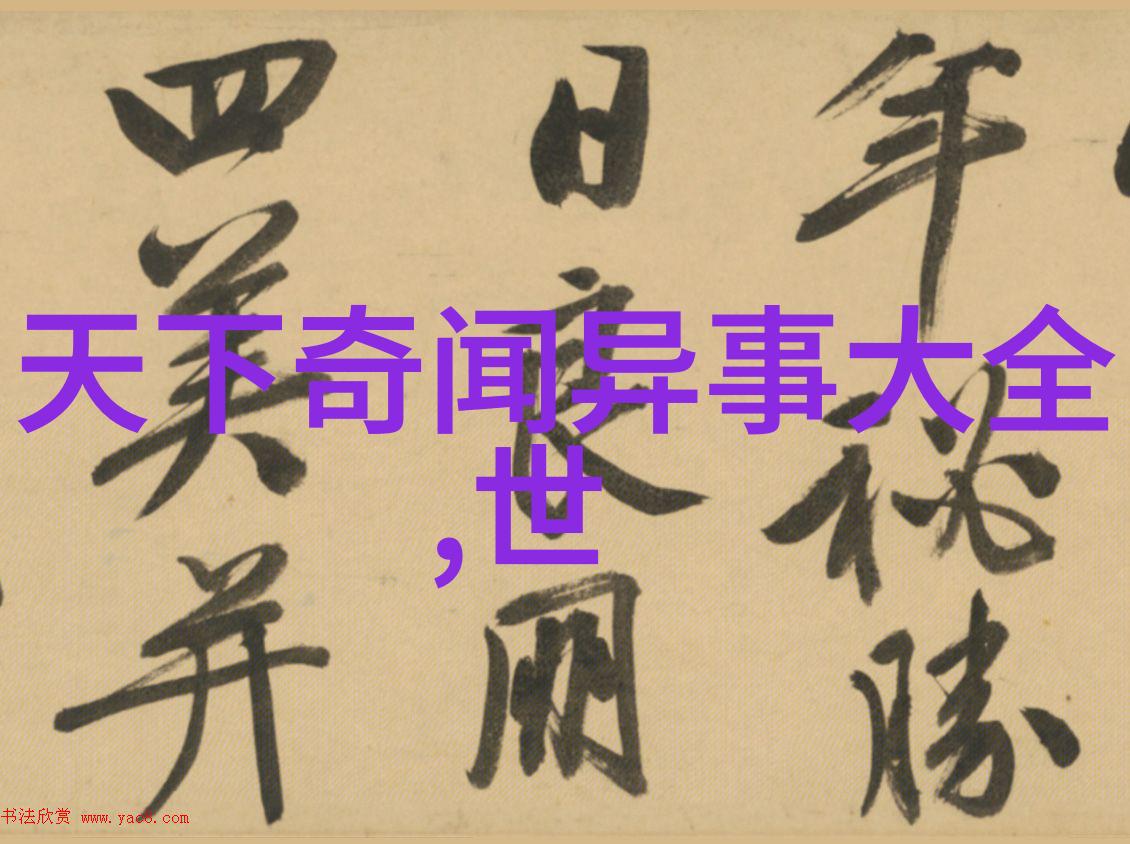 天下奇闻异事大全
,世
年秘勝
日良朋
四美并
书法欣赏 www.yac8.com